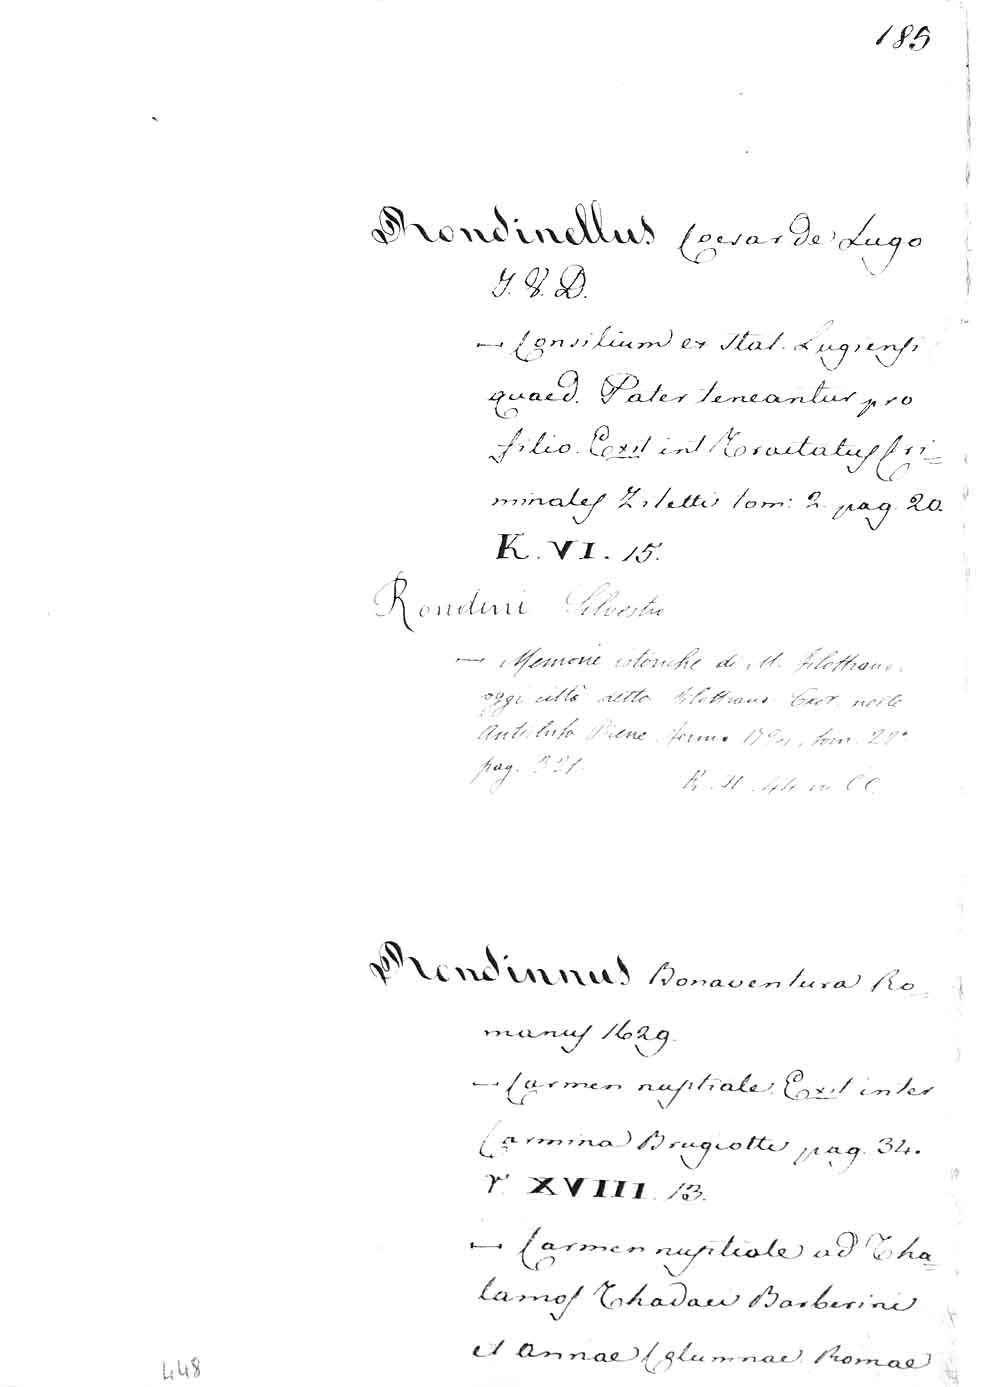 185
Rondinellus Caesar de Lugo
I. V. D.
— Consilium ex Stat. Lugiensi
quaed. Pater teneantur pro
filio. Exit int Tractatus Cri=
minales Ziletti tom: 2. pag. 20.
K. VI. 15.
Rondini Silvestro
— Memorie istoriche di M. Filottrano,
oggi città detto Filottrano. Extr. nelle
Antichità Picene. Fermo 1794, tom. 22°
pag. 321.
R. II. 44 in CC.
Rondinnus Bonaventura Ro=
manus 1629.
— Carmen nuptiale. Exit inter
Carmina Brugiotti pag. 34.
Y XVIII. 13.
— Carmen nuptiale ad Tha=
lamos Thadaei Barberini
et Annae Columnae. Romae
448